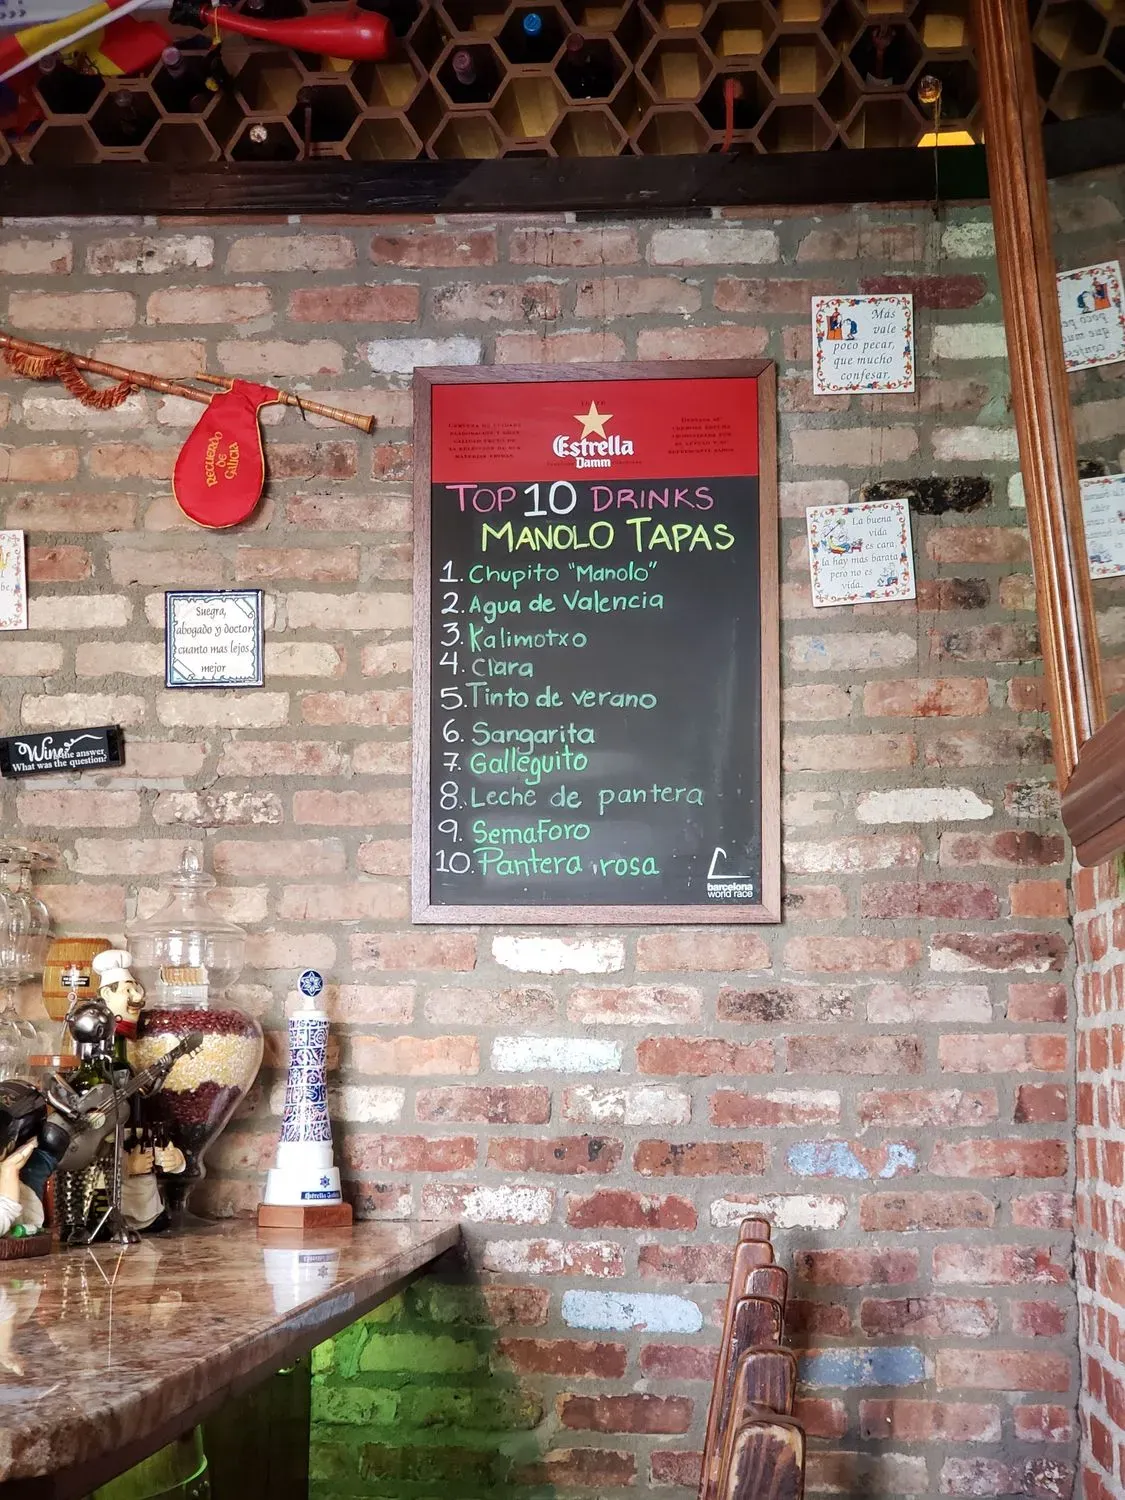 Más
vale
poco pecar,
que mucho
confesar.
RECUERDO
DE
GALICIA
Estrella
Damm
TOP 10 DRINKS
MANOLO TAPAS
1. Chupito "Manolo"
2. Agua de Valencia
3. Kalimotxo
4. Clara
5. Tinto de verano
6. Sangarita
7. Galleguito
8. Leche de pantera
9. Semaforo
10. Pantera rosa
barcelona
world race
La buena
vida
es cara
la hay mas barata
pero no es
vida.
Suegra,
abogado y doctor
cuanto mas lejos
mejor
Wine the answer
What was the question?